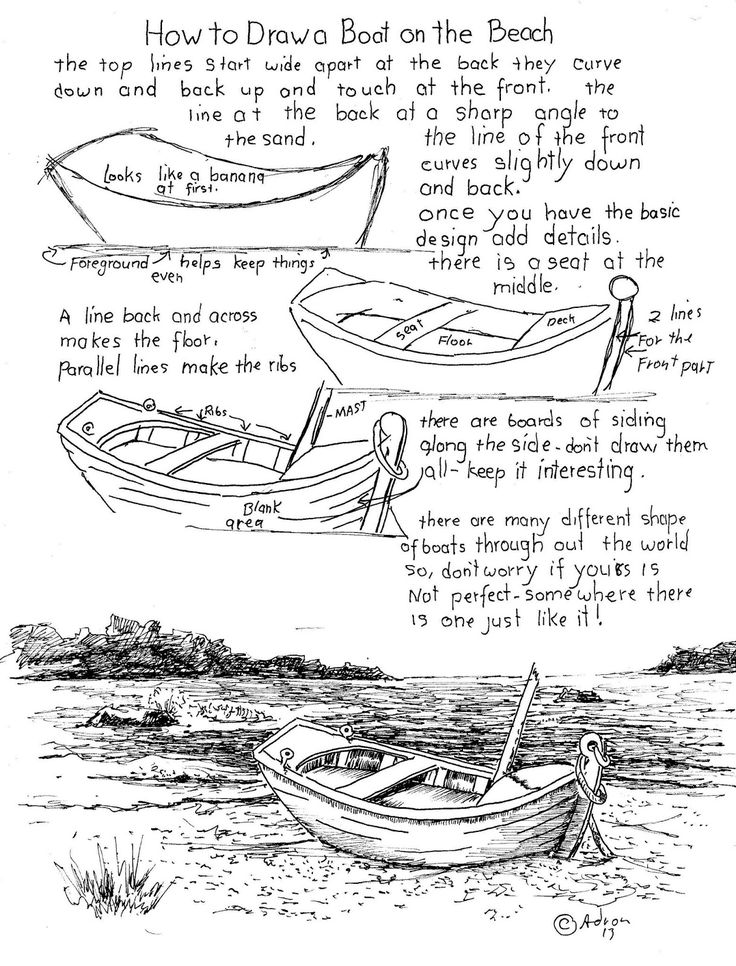 How to Draw a Boat on the Beach
the top lines start wide apart at the back they curve
down and back up and touch at the front. the
line at the back at a sharp angle to
the sand.
the line of the front
curves slightly down
and back.
Looks like a banana
at first.
once you have the basic
design add details.
there is a seat at the
middle.
Foreground helps keep things
even
A line back and across
makes the floor.
parallel lines make the ribs
Seat
Floor
Deck
2 lines
For the
Front part
@
@
Ribs
MAST
Blank
area
there are boards of siding
along the side - don't draw them
all - keep it interesting.
there are many different shape
of boats through out the world
so, don't worry if yours is
Not perfect - somewhere there
is one just like it!
© Adron
13